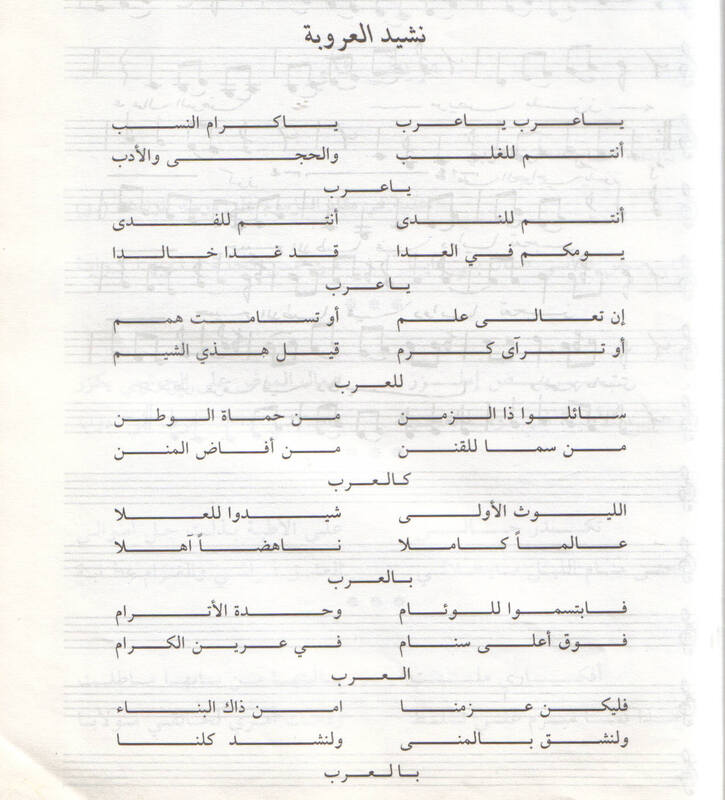 نشيد العروبة
ياعرب ياعرب ياكرام النسب
أنتم للغلب والحجى والأدب
ياعرب
أنتم للندى أنتم للفدى
يومكم في العدا قد غدا خالدا
ياعرب
إن تعالى علم أو تسامت همم
أو ترآى كرم قيل هذي الشيم
للعرب
سائلوا ذا الزمن من حماة الوطن
من سما للقنن من أفاض المنن
كالعرب
الليوث الأولى شيدوا للعلا
عالماً كاملا ناهضاً آهلا
بالعرب
فابتسموا للوئام وحدة الأترام
فوق أعلى سنام في عرين الكرام
العرب
فليكن عزمنا امن ذاك البناء
ولنشق بالمنى ولنشد كلنا
بالعرب